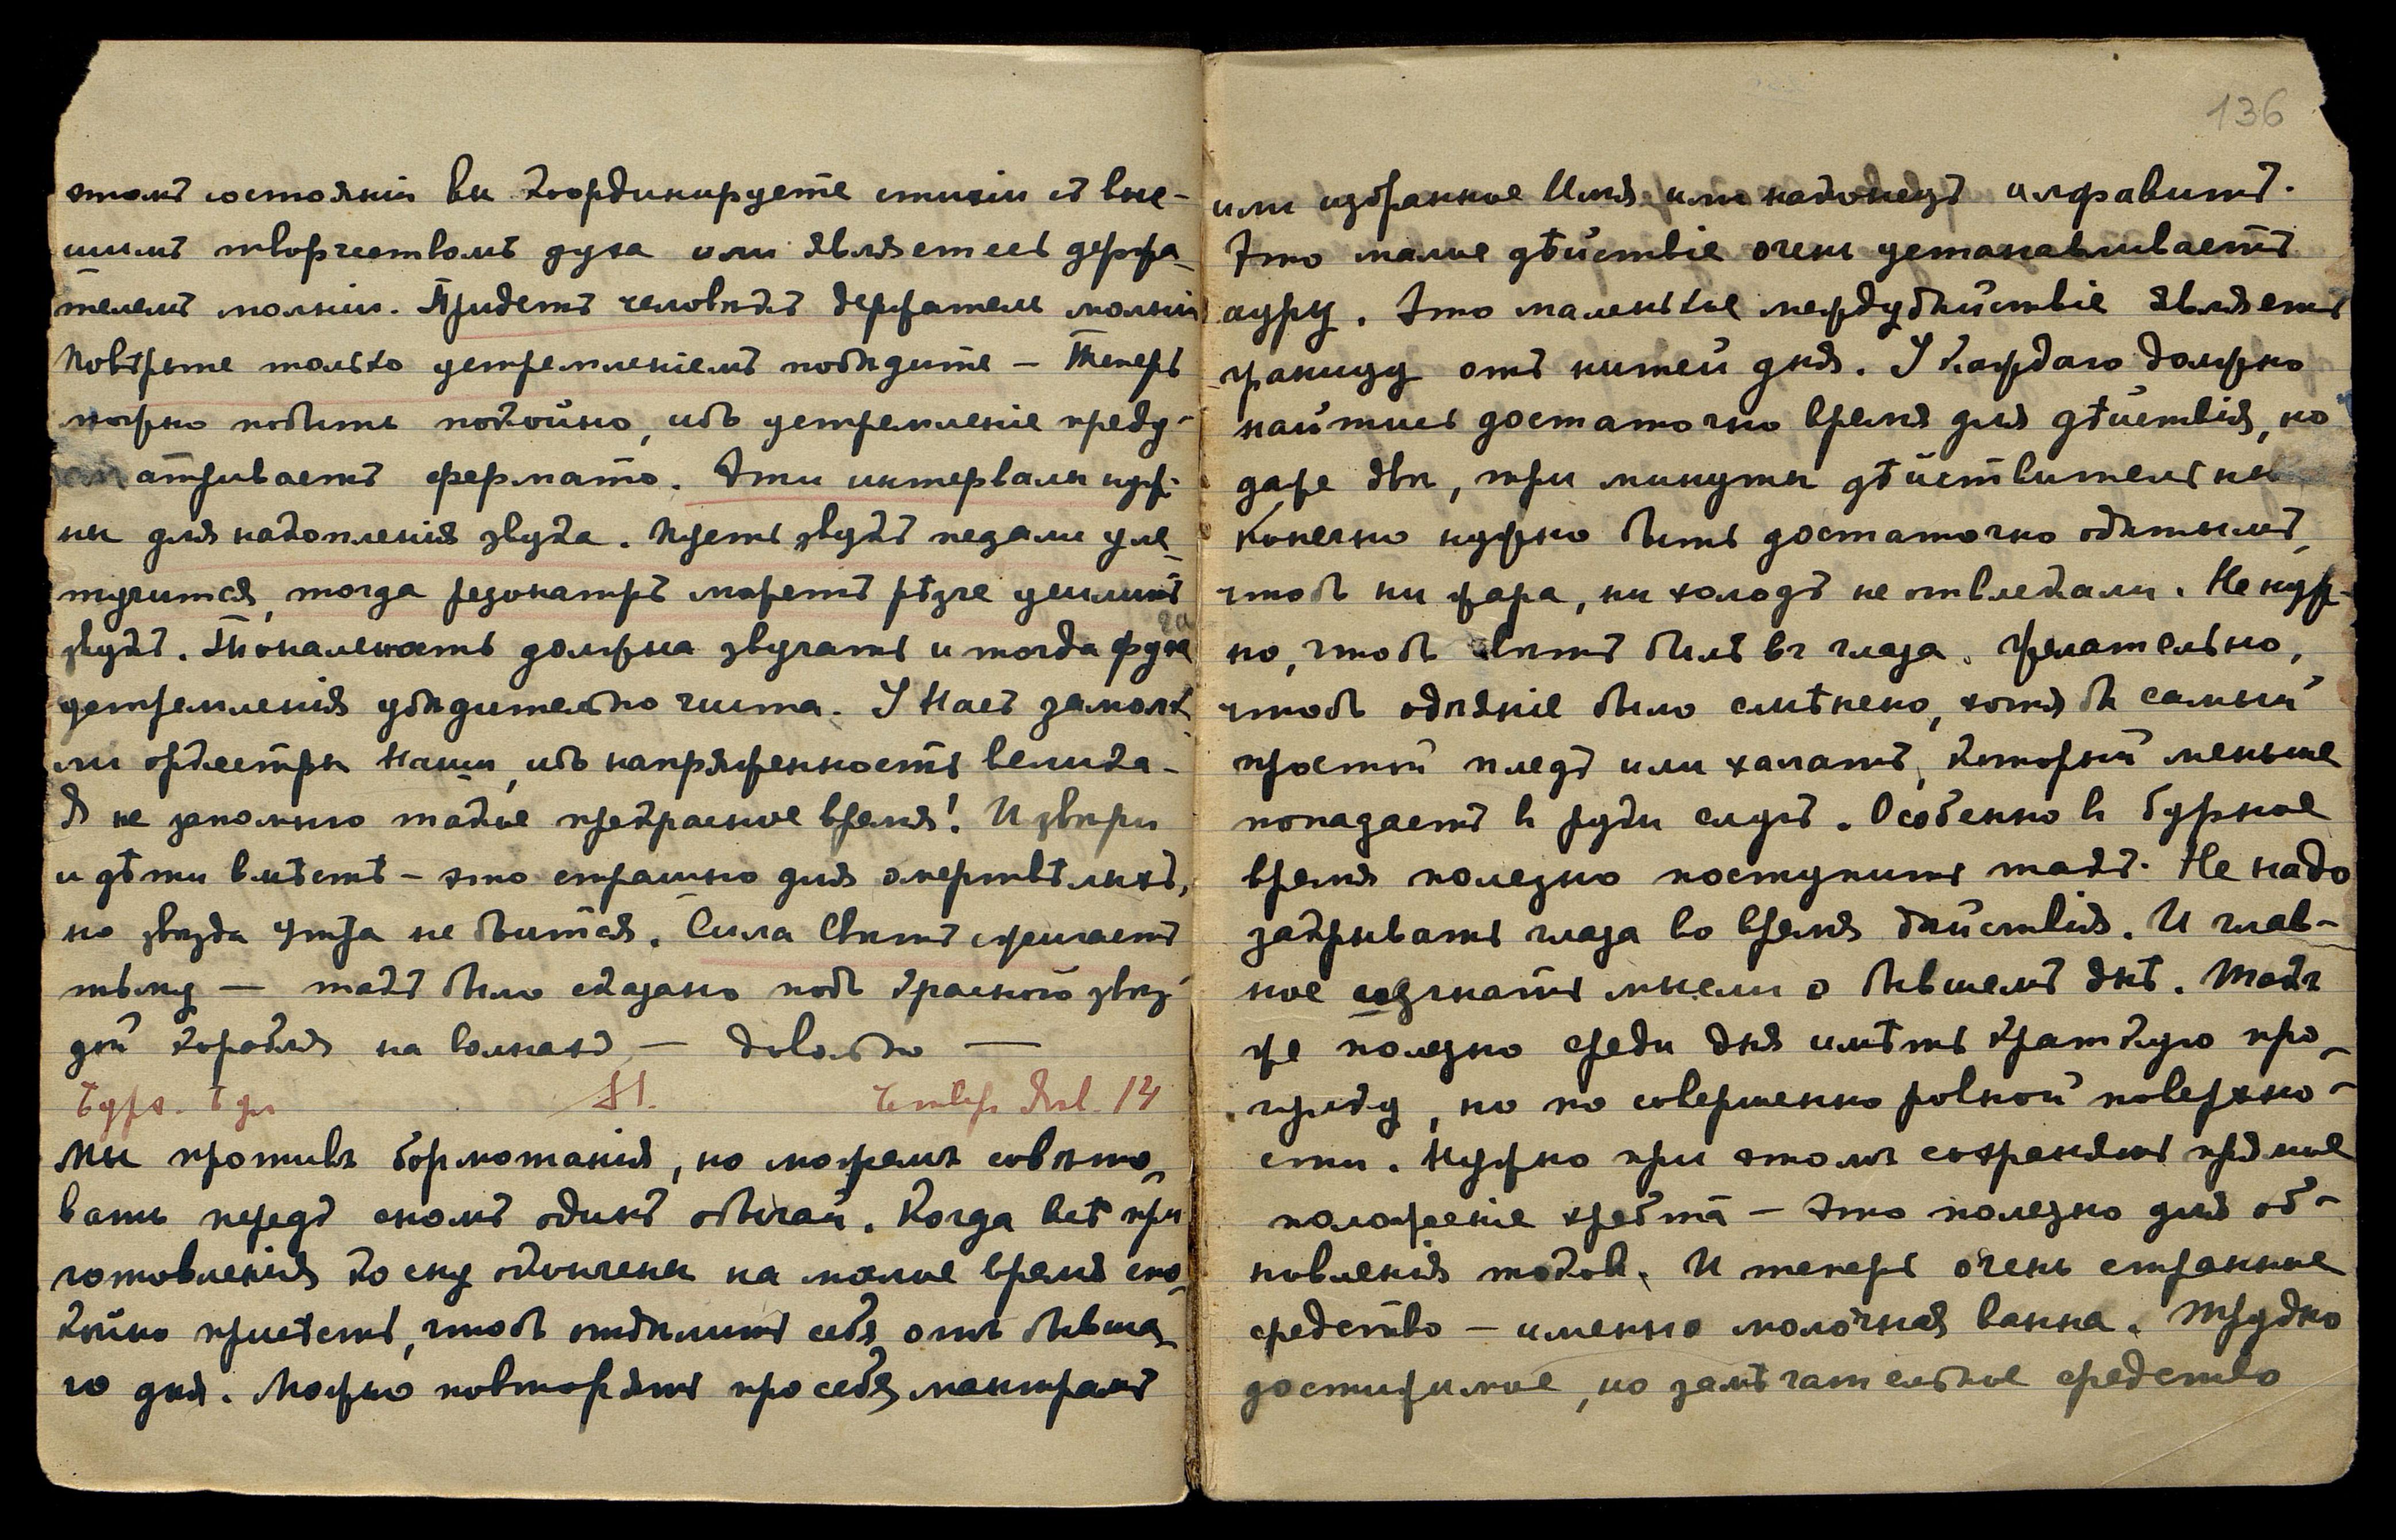 этомъ состоянiи вы координируете стихiи съ выс-
шимъ творчествомъ духа или являетесь держа-
телемъ молнiи. Придетъ человѣкъ держатель молнiи
Повѣрьте только устремленiемъ побѣдите — Теперь
можно побыть покойно, ибо устремленiе преду-
сматриваетъ фермато. Эти интервалы нуж-
ны для накопленiя звука. Пусть звукъ педали уле-
тучится, тогда резонаторъ можетъ рѣзче усилить
звукъ. Тональность должна звучать и тогда фуга
устремленiя убѣдительно чиста. У Насъ замолк-
ли оркестры Наши, ибо напряженность велика-
Я не запомню такое прекрасное время! И звѣри
и дѣти вмѣстѣ — это страшно для омертвѣлыхъ,
но звѣзда утра не бьится. Сила Свѣта сжигаетъ
тьму — такъ было сказано подъ красною звѣз-
дой корабля на волнахъ — довольно —
51. Четвер Янв. 14
Мы противъ бормотанiя, но можемъ совѣто-
вать передъ сномъ одинъ обычай. Когда всѣ при
готовленiя ко сну окончены на малое время спо-
койно присѣсть, чтобъ отдѣлить себя отъ бывша-
го дня. Можно повторять про себя мантрамъ
136
или избранное Имя или наконецъ алфавитъ.
Это малое дѣйствiе очень устанавливаетъ
ауру. Это маленькое междудѣйствiе являетъ
границу отъ нитей дня. У каждаго должно
найтись достаточно время для дѣйствiя, но
даже двѣ, три минуты дѣйствительны
Конечно нужно быть достаточно одѣтымъ,
чтобъ ни жара, ни холодъ не отвлекали. Не нуж-
но, чтобъ свѣтъ билъ въ глаза. Желательно,
чтобъ одѣянiе было смѣнено, хотя бы самый
простой пледъ или халатъ, который меньше
попадаетъ въ руки слугъ. Особенно въ бурное
время полезно поступить такъ. Не надо
закрывать глаза во время дѣйствiя. И глав-
ное изгнать мысли о бывшемъ днѣ. Такъ
же полезно среди дня имѣть краткую про-
гулку, но по совершенно ровной поверхно-
сти. Нужно при этомъ сохранять прямое
положенiе хребта — это полезно для об-
новленiя токовъ. И теперь очень странное
средство — именно молочная ванна. Трудно
достижимое, но замѣчательное средство